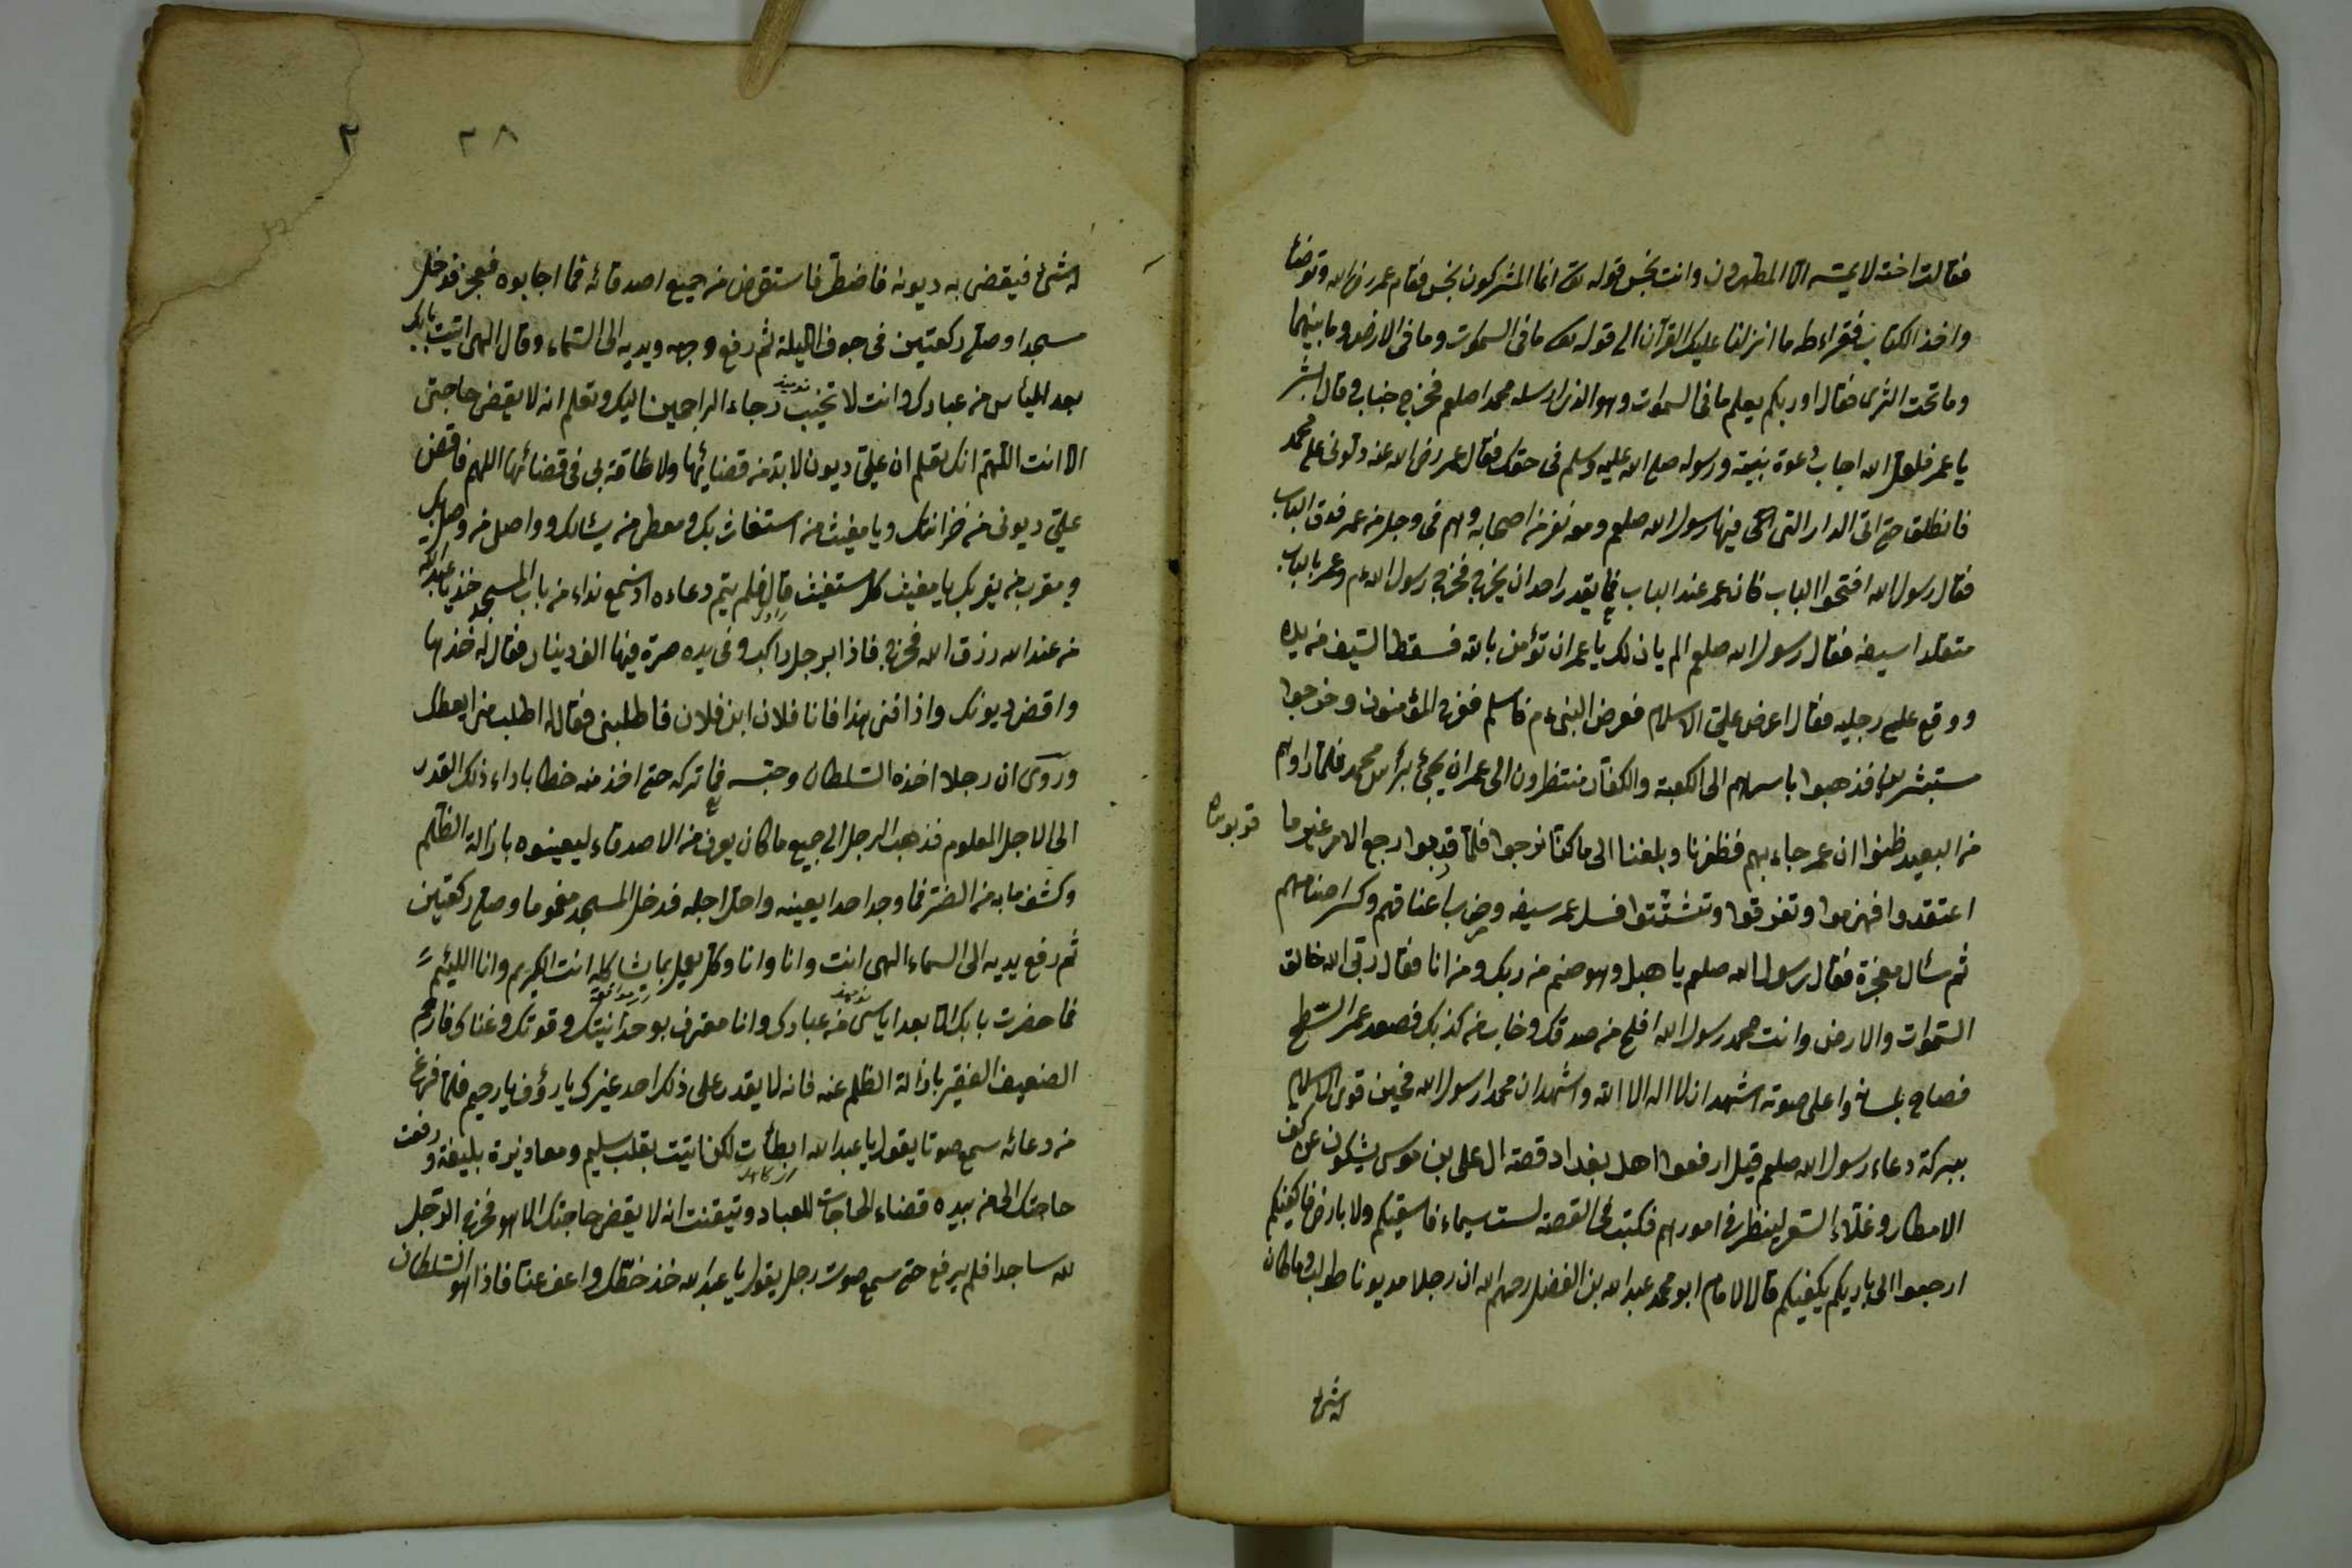 فقالت اخته لا يمسه الا المطهرون وانت نجس قوله تع انما المشركون نجس فقام عمر رض الله وتوضأ
واخذ الكتاب فقراء طه ما انزلنا عليك القرآن الى قوله تع ما فى السموات وما فى الارض وما بينهما
وما تحت الثرى فقال اوربكم يعلم ما فى السموات وهو الذى ارسله محمدا صلعم فخرج خباب وقال ابشر
يا عمر فلعل الله اجاب دعوة نبيه ورسوله صلى الله عليه وسلم فى حقك فقال عمر رض الله عنه دلونى على محمد
فانطلق حتى اتى الدار التى فيها رسول الله صلعم ومعه نفر من اصحابه وهم فى وجل من عمر فدق الباب
فقال رسول الله افتحوا الباب فانه عمر عند الباب فما يقدر احد ان يخرج فخرج رسول الله عم وعمر بالباب
متقلدا سيفه فقال رسول الله صلعم الم يان لك يا عمر ان تؤمن بالله فسقط السيف من يده
ووقع على رجليه فقال اعرض على الاسلام فعرض النبى عم فاسلم ففرح المؤمنون وخرجوا
مستبشرين فذهبوا باسرهم الى الكعبة والكفار منتظرون الى عمر ان يجئ برأس محمد فلما راوهم
من البعيد ظنوا ان عمر جاء بهم فظفرنا وبلغنا الى ما كنا نرجوا فلما قربوا رجع الامر غير ما
اعتقدوا فهزموا وتفرقوا وتشتتوا فسل عمر سيفه وضرب اعناقهم وكسر اصنامهم
ثم سئال معجزة فقال رسول الله صلعم يا هبل وهو صنم من ربك ومن انا فقال ربى الله خالق
السموات والارض وانت محمد رسول الله افلح من صدقك وخاب من كذبك فصعد عمر السطح
فصاح بلسانه واعلى صوته اشهد ان لا اله الا الله واشهد ان محمدا رسول الله فحين قوى الاسلام
ببركة دعاء رسول الله صلعم قيل ارفعوا اهل بغداد قصة الى على بن موسى يشكون عن كف
الامطار وغلاء السعر لينظر فى امورهم فكتب فى القصة لست بسماء فاسقيكم ولا بارض فاكفيكم
ارجعوا الى باريكم يكفيكم قال الامام ابو محمد عبد الله بن الفضل رحمهم الله ان رجلا مديونا طولب وما كان
له شئ
٢٨
٢
له شئ فيقضى به ديونه فاضطر فاستقرض من جميع اصدقائه فما اجابوه فعجز فدخل
مسجدا وصلى ركعتين فى جوف الليلة ثم رفع وجهه ويديه الى السماء وقال الهى اتيت بابك
بعد اليأس من عبادك وانت لا تخيب رجاء الراجين اليك وتعلم انه لا يقضى حاجتى
الا انت اللهم انك تعلم ان على ديون لا بد من قضائها ولا طاقة بى فى قضائها اللهم فاقض
على ديونى من خزائنك ويا مغيث من استغاث بك ومعطى من يسئالك وواصل من وصل بك
ومقرب من يقربك يا مغيث كل مستغيث قال فلم يتم دعاءه اذ سمع نداء من باب المسجد خذ يا عبد الله
من عند الله رزق الله فخرج فاذا برجل راكب وفى يده صرة فيها الف دينار فقال له خذها
واقض ديونك واذا فنى هذا فانا فلان ابن فلان فاطلبنى فقال له اطلب من ايعطك
وروى ان رجلا اخذه السلطان وحبسه فما تركه حتى اخذ منه خطا باداء ذلك القدر
الى الاجل المعلوم فذهب الرجل الى جميع ما كان يعرف من الاصدقاء ليعينوه بازالة الظلم
وكشف ما به من الضر فما وجد احدا يعينه واحل اجله فدخل المسجد مغموما وصلى ركعتين
ثم رفع يديه الى السماء الهى انت وانا وانا وكل يعمل بما يشاكله انت الكريم وانا اللئيم
فما حضرت بابك الا بعد اياسى من عبادك وانا معترف بوحدانيتك وقوتك وغناك فارحم
الضعيف الفقير بازالة الظلم عنه فانه لا يقدر على ذلك احد غيرك يا رؤف يا رحيم فلما فرغ
من دعائه سمع صوتا يقول يا عبد الله ابطأت لكن اتيت بقلب سليم ومعاذيرة بليغة ورفعت
حاجتك الى من بيده قضاء الحاجات للعباد وتيقنت انه لا يقضى حاجتك الا هو فخر الرجل
لله ساجدا فلم يرفع حتى سمع صوت رجل يقول يا عبد الله خذ خطك واعف عنا فاذا هو السلطان